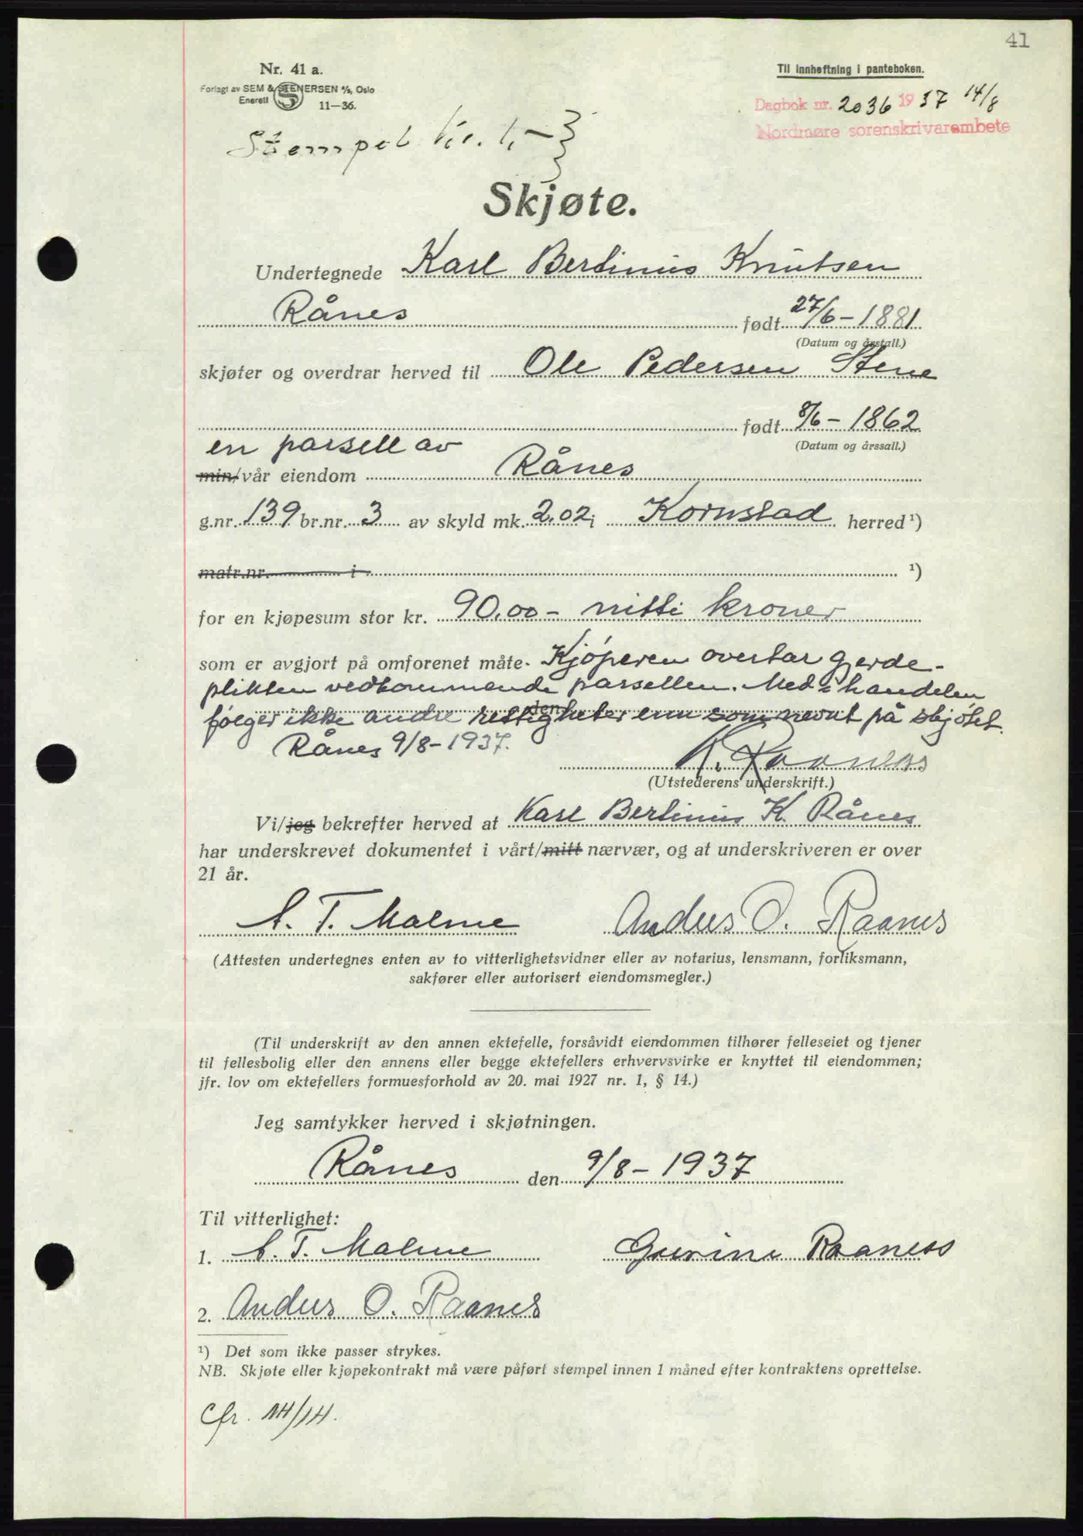 41
Nr. 41 a.
Forlagt av SEM & STENERSEN A/S, Oslo
Enerett S 11—36.
Til innheftning i panteboken.
Dagbok nr. 2036 1937 14/8
Nordmøre sorenskrivarembete
Stempel kr. 1,-
Skjøte.
Undertegnede Karl Bertinius Knutsen
Rånes født 27/6-1881
(Datum og årstall.)
skjøter og overdrar herved til Ole Pedersen Stene
født 8/6-1862
(Datum og årssall.)
en parsell av
min/vår eiendom Rånes
g.nr. 139 br.nr. 3 av skyld mk. 2.02 i Kornstad herred ¹)
matr.nr. i ¹)
for en kjøpesum stor kr. 90.00- nitti kroner
som er avgjort på omforenet måte. Kjøperen overtar gjerde-
plikten vedkommende parsellen. Med i handelen
følger ikke andre rettigheter enn som nevnt på skjøtet.
Rånes 9/8-1937.
K. Raaness
(Utstederens underskrift.)
Vi/jeg bekrefter herved at Karl Bertinius K. Rånes
har underskrevet dokumentet i vårt/mitt nærvær, og at underskriveren er over
21 år.
A. T. Malme Anders O. Raanes
(Attesten undertegnes enten av to vitterlighetsvidner eller av notarius, lensmann, forliksmann,
sakfører eller autorisert eiendomsmegler.)
(Til underskrift av den annen ektefelle, forsåvidt eiendommen tilhører felleseiet og tjener
til fellesbolig eller den annens eller begge ektefellers erhvervsvirke er knyttet til eiendommen;
jfr. lov om ektefellers formuesforhold av 20. mai 1927 nr. 1, § 14.)
Jeg samtykker herved i skjøtningen.
Rånes den 9/8-1937
Til vitterlighet:
1. A. T. Malme Gurine Raaness
2. Anders O. Raanes
¹) Det som ikke passer strykes.
NB. Skjøte eller kjøpekontrakt må være påført stempel innen 1 måned efter kontraktens oprettelse.
Cfr. 14/14.